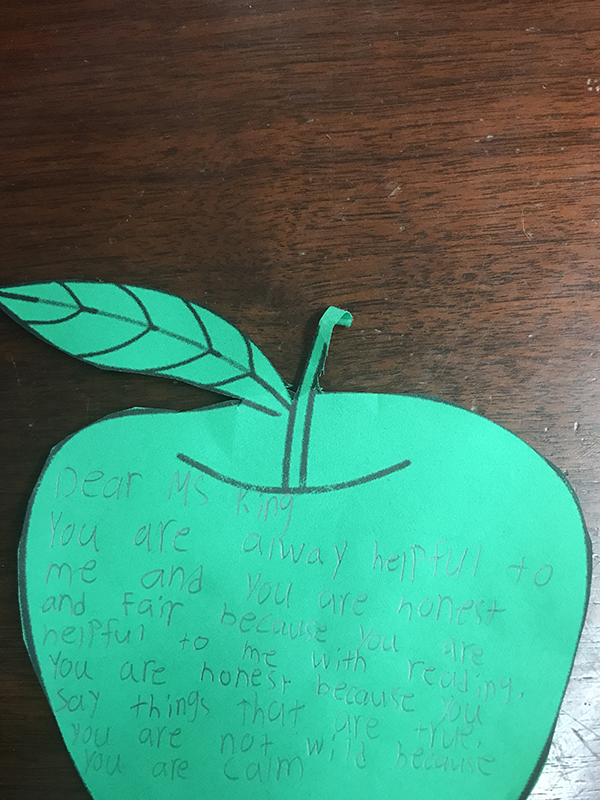 Dear Ms King
You are alway helpful to
me and you are honest
and Fair because you are
helpful to me with reading.
You are honest because you
say things that are true.
you are not wild because
you are calm